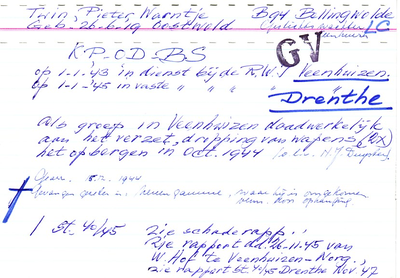 Twin, Pieter Warntje Bgy Bellingwolde
Geb. 26-6-19 Oostwold LC
GV
K.P.-O.D.-B.S
op 1-1-'43 in dienst bij de R.W.I Veenhuizen.
op 1-1-'45 in vaste " " "
Drenthe
als groep in Veenhuizen daadwerkelijk
aan het verzet, dropping van wapens (2x)
het opbergen in Oct. 1944
1944
maar hij is omgekomen
1 St. 40/45 zie schaderapp.
Zie rapport dd. 26-11-45 van
W. Hof te Veenhuizen-Norg.,
zie rapport St. 40/45 Drenthe Nov 47